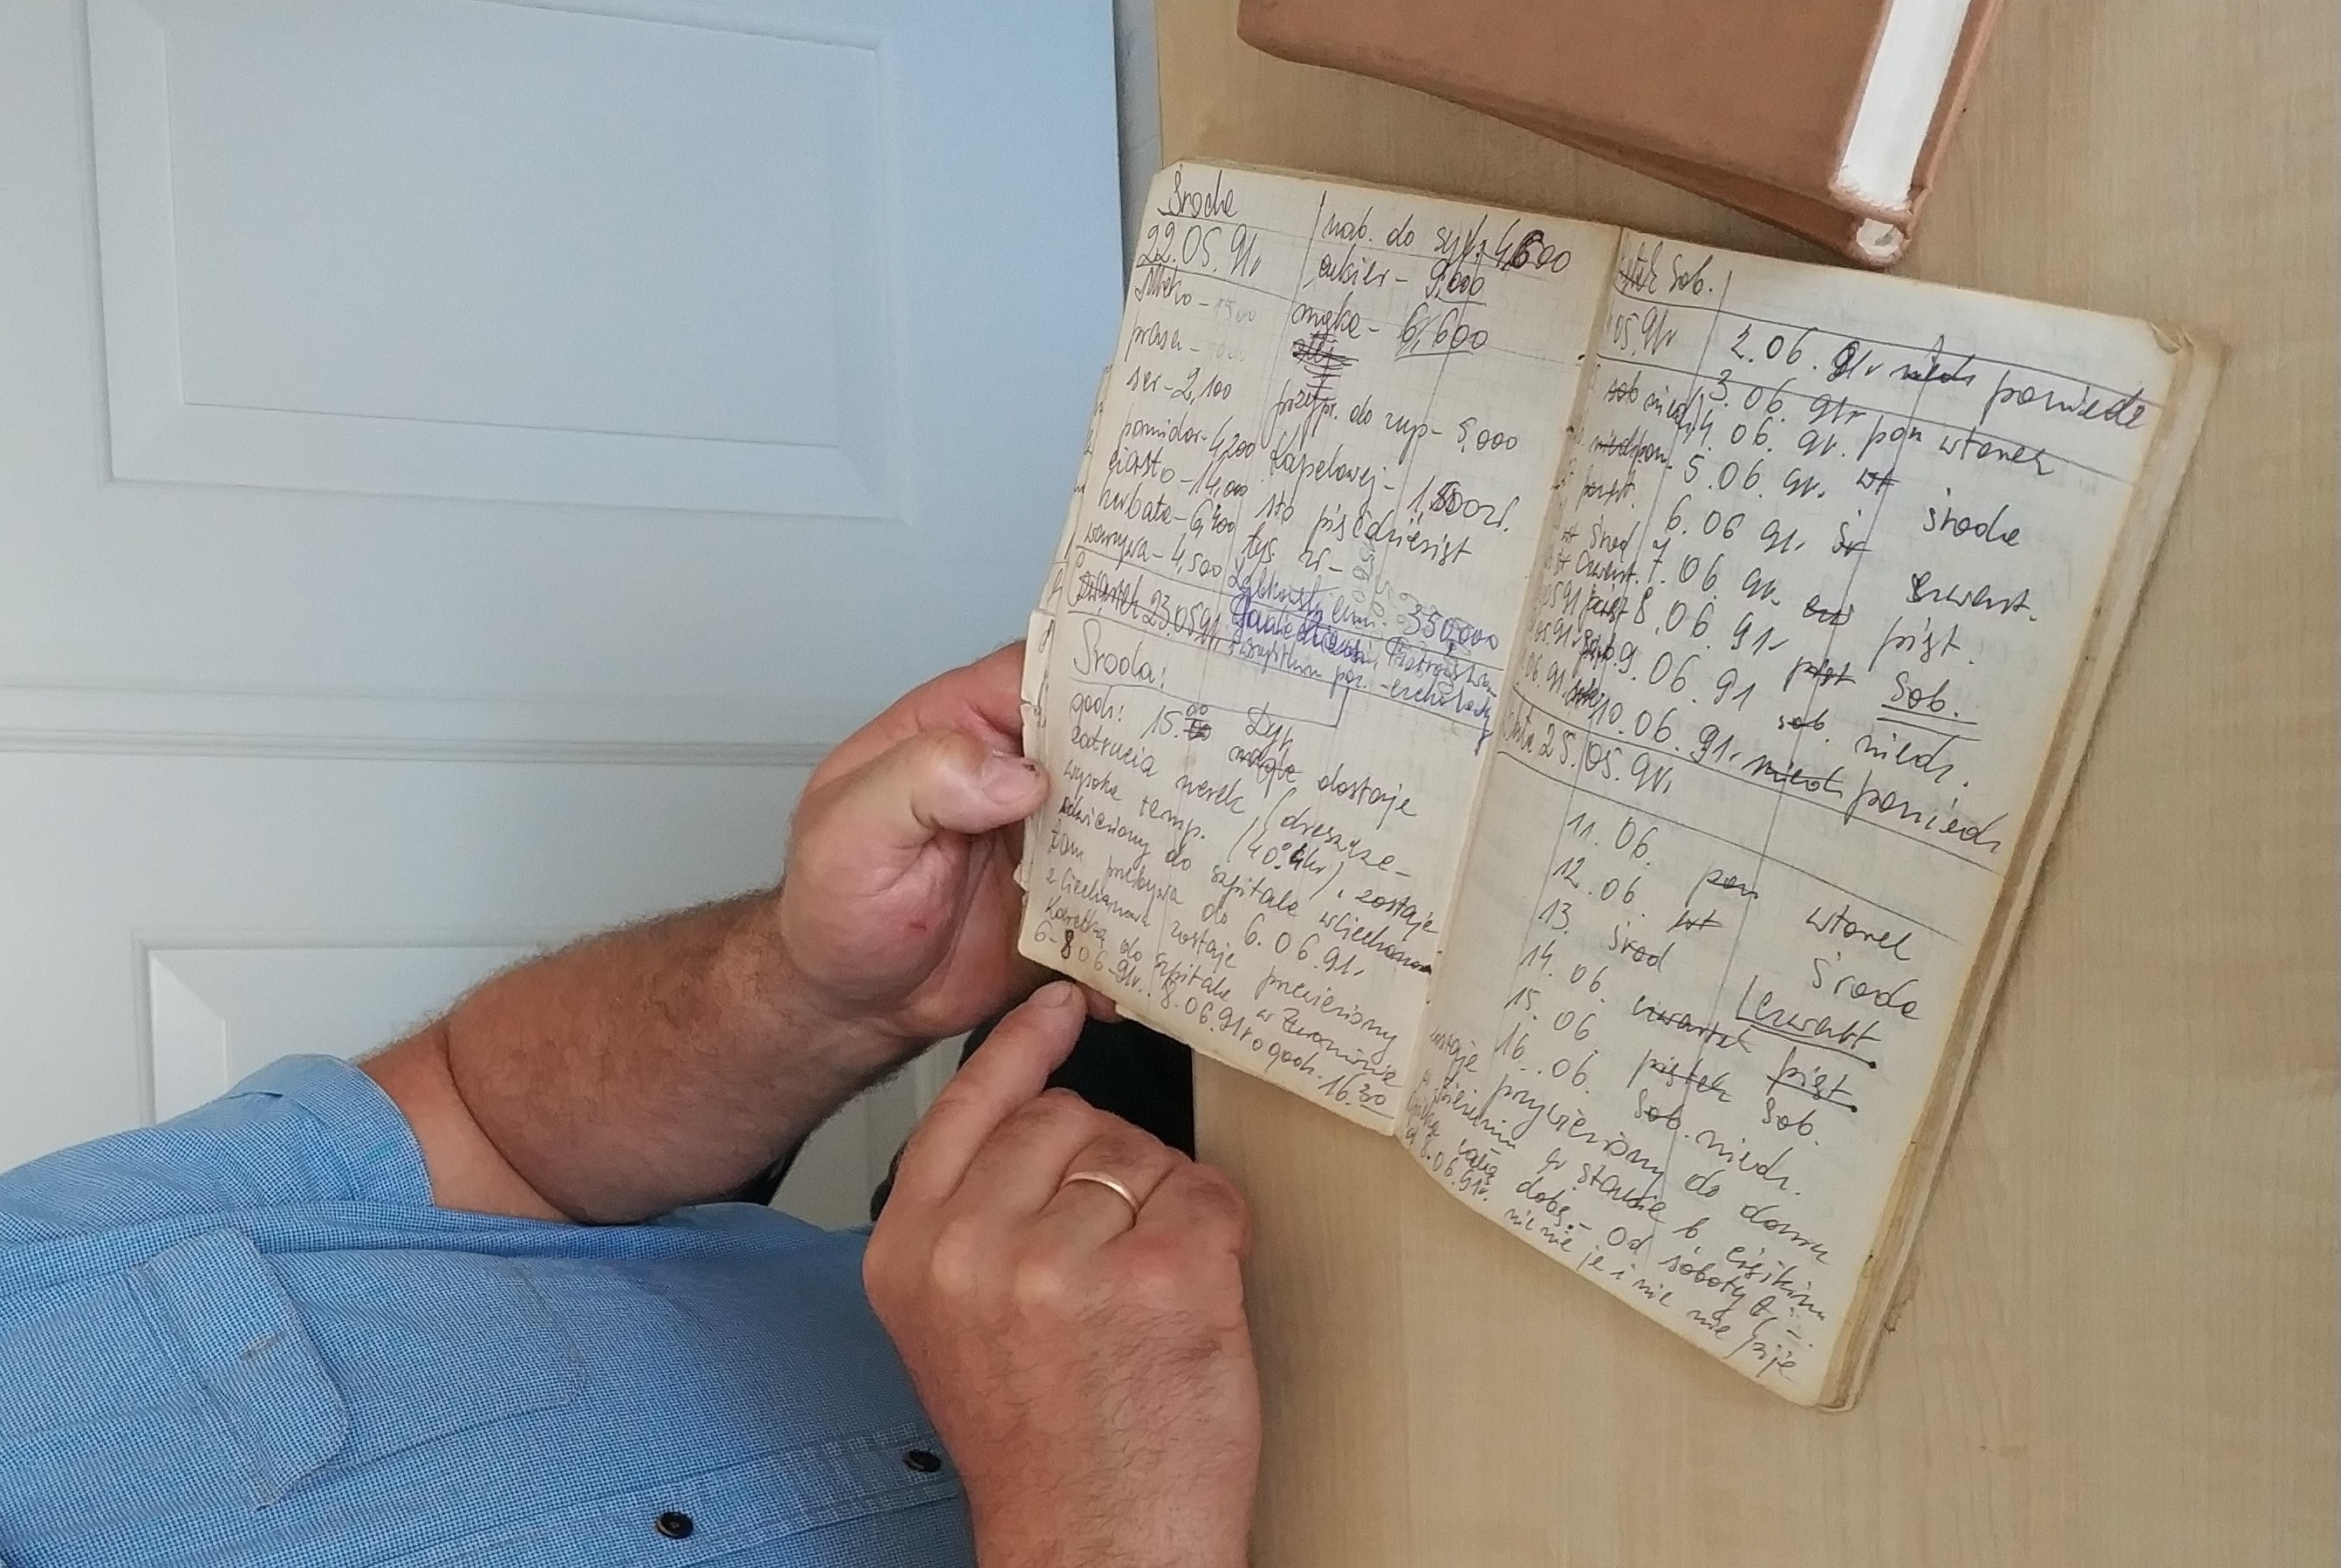 Środa
22.05.91r
mleko - 1500
prasa -
ser - 2,100
pomidor - 4,200
ciasto - 14,000
herbata - 6,400
warzywa - 4,500
nab. do syf. 4,600
cukier - 9,000
mąka - 6,600
przypr. do zup - 5,000
1,500 zł.
sto pięćdziesiąt
tys. zł -
350,000
czwartek 23.05 91r.
Środa:
godz: 15.00 Zyg.
nagle dostaje
zatrucia nerek (dreszcze -
wysoka temp. (40° 4kr), zostaje
odwieziony do szpitala w Ciechanowie
tam przebywa do 6.06.91r.
z Ciechanowa zostaje przewieziony
Karetką do szpitala w Żurominie
6-8 06-91r. 8.06.91r o godz. 16.30
sob.
05.91r
2.06.91r niedz poniedz
niedz 3.06.91r pon wtorek
pon. 4.06.91r.
5.06.91r. wt środa
środ 6.06 91r. śr czwart.
czwart. 7.06.91r. czw piąt.
05 91 piąt 8.06.91r piąt sob.
05.91r sob 9.06.91 sob. niedz.
06.91r. 10.06.91r. niedz poniedz
25.05.91r.
11.06. pon wtorek
12.06. wt środa
13. środ czwart
14.06. czwartek piąt.
15.06 piątek sob.
16..06. sob. niedz.
przywieziony do domu
w stanie b. ciężkim
całą dobę. - Od soboty tj -
8.06.91r. nic nie je i nic nie pije